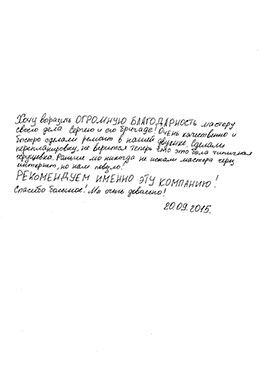 Хочу выразить ОГРОМНУЮ БЛАГОДАРНОСТЬ мастеру
своего дела Сергею и его бригаде! Очень качественно и
быстро сделали ремонт в нашей двушке. Сделали
перепланировку, не верится теперь что это была типичная
хрущевка. Раньше мы никогда не искали мастера через
интернет, но нам повезло!
РЕКОМЕНДУЕМ ИМЕННО ЭТУ КОМПАНИЮ!
Спасибо большое! Мы очень довольны!
20.09.2015.